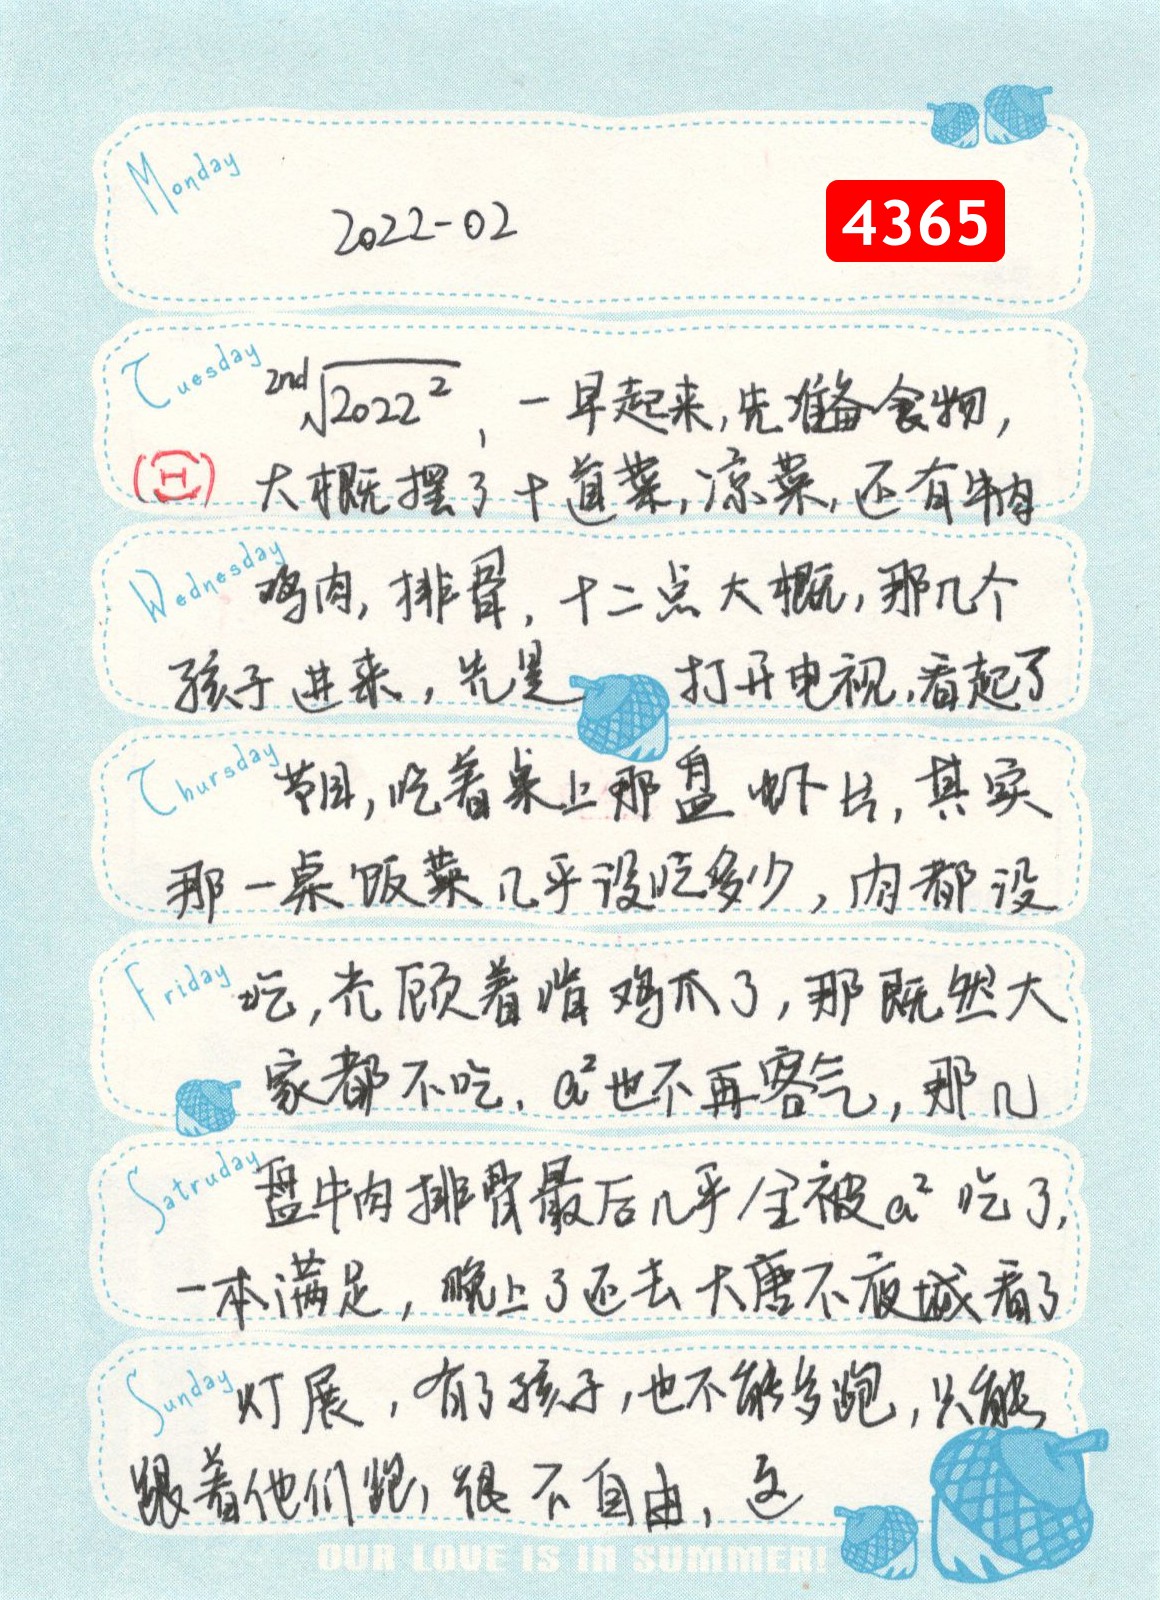 Monday
2022-02
4365
Tuesday
2nd√2022², 一早起来,先准备食物,
(日) 大概摆了十道菜,凉菜,还有牛肉
Wednesday
鸡肉,排骨,十二点大概,那几个
孩子进来,先是打开电视,看起了
Thursday
节目,吃着桌上那盘虾片,其实
那一桌饭菜几乎没吃多少,肉都没
Friday
吃,光顾着啃鸡爪了,那既然大
家都不吃,a²也不再客气,那几
Satruday
盘牛肉排骨最后几乎全被a²吃了,
一本满足,晚上了还去大唐不夜城看了
Sunday
灯展,有了孩子,也不能多跑,只能
跟着他们跑,很不自由,这
OUR LOVE IS IN SUMMER!